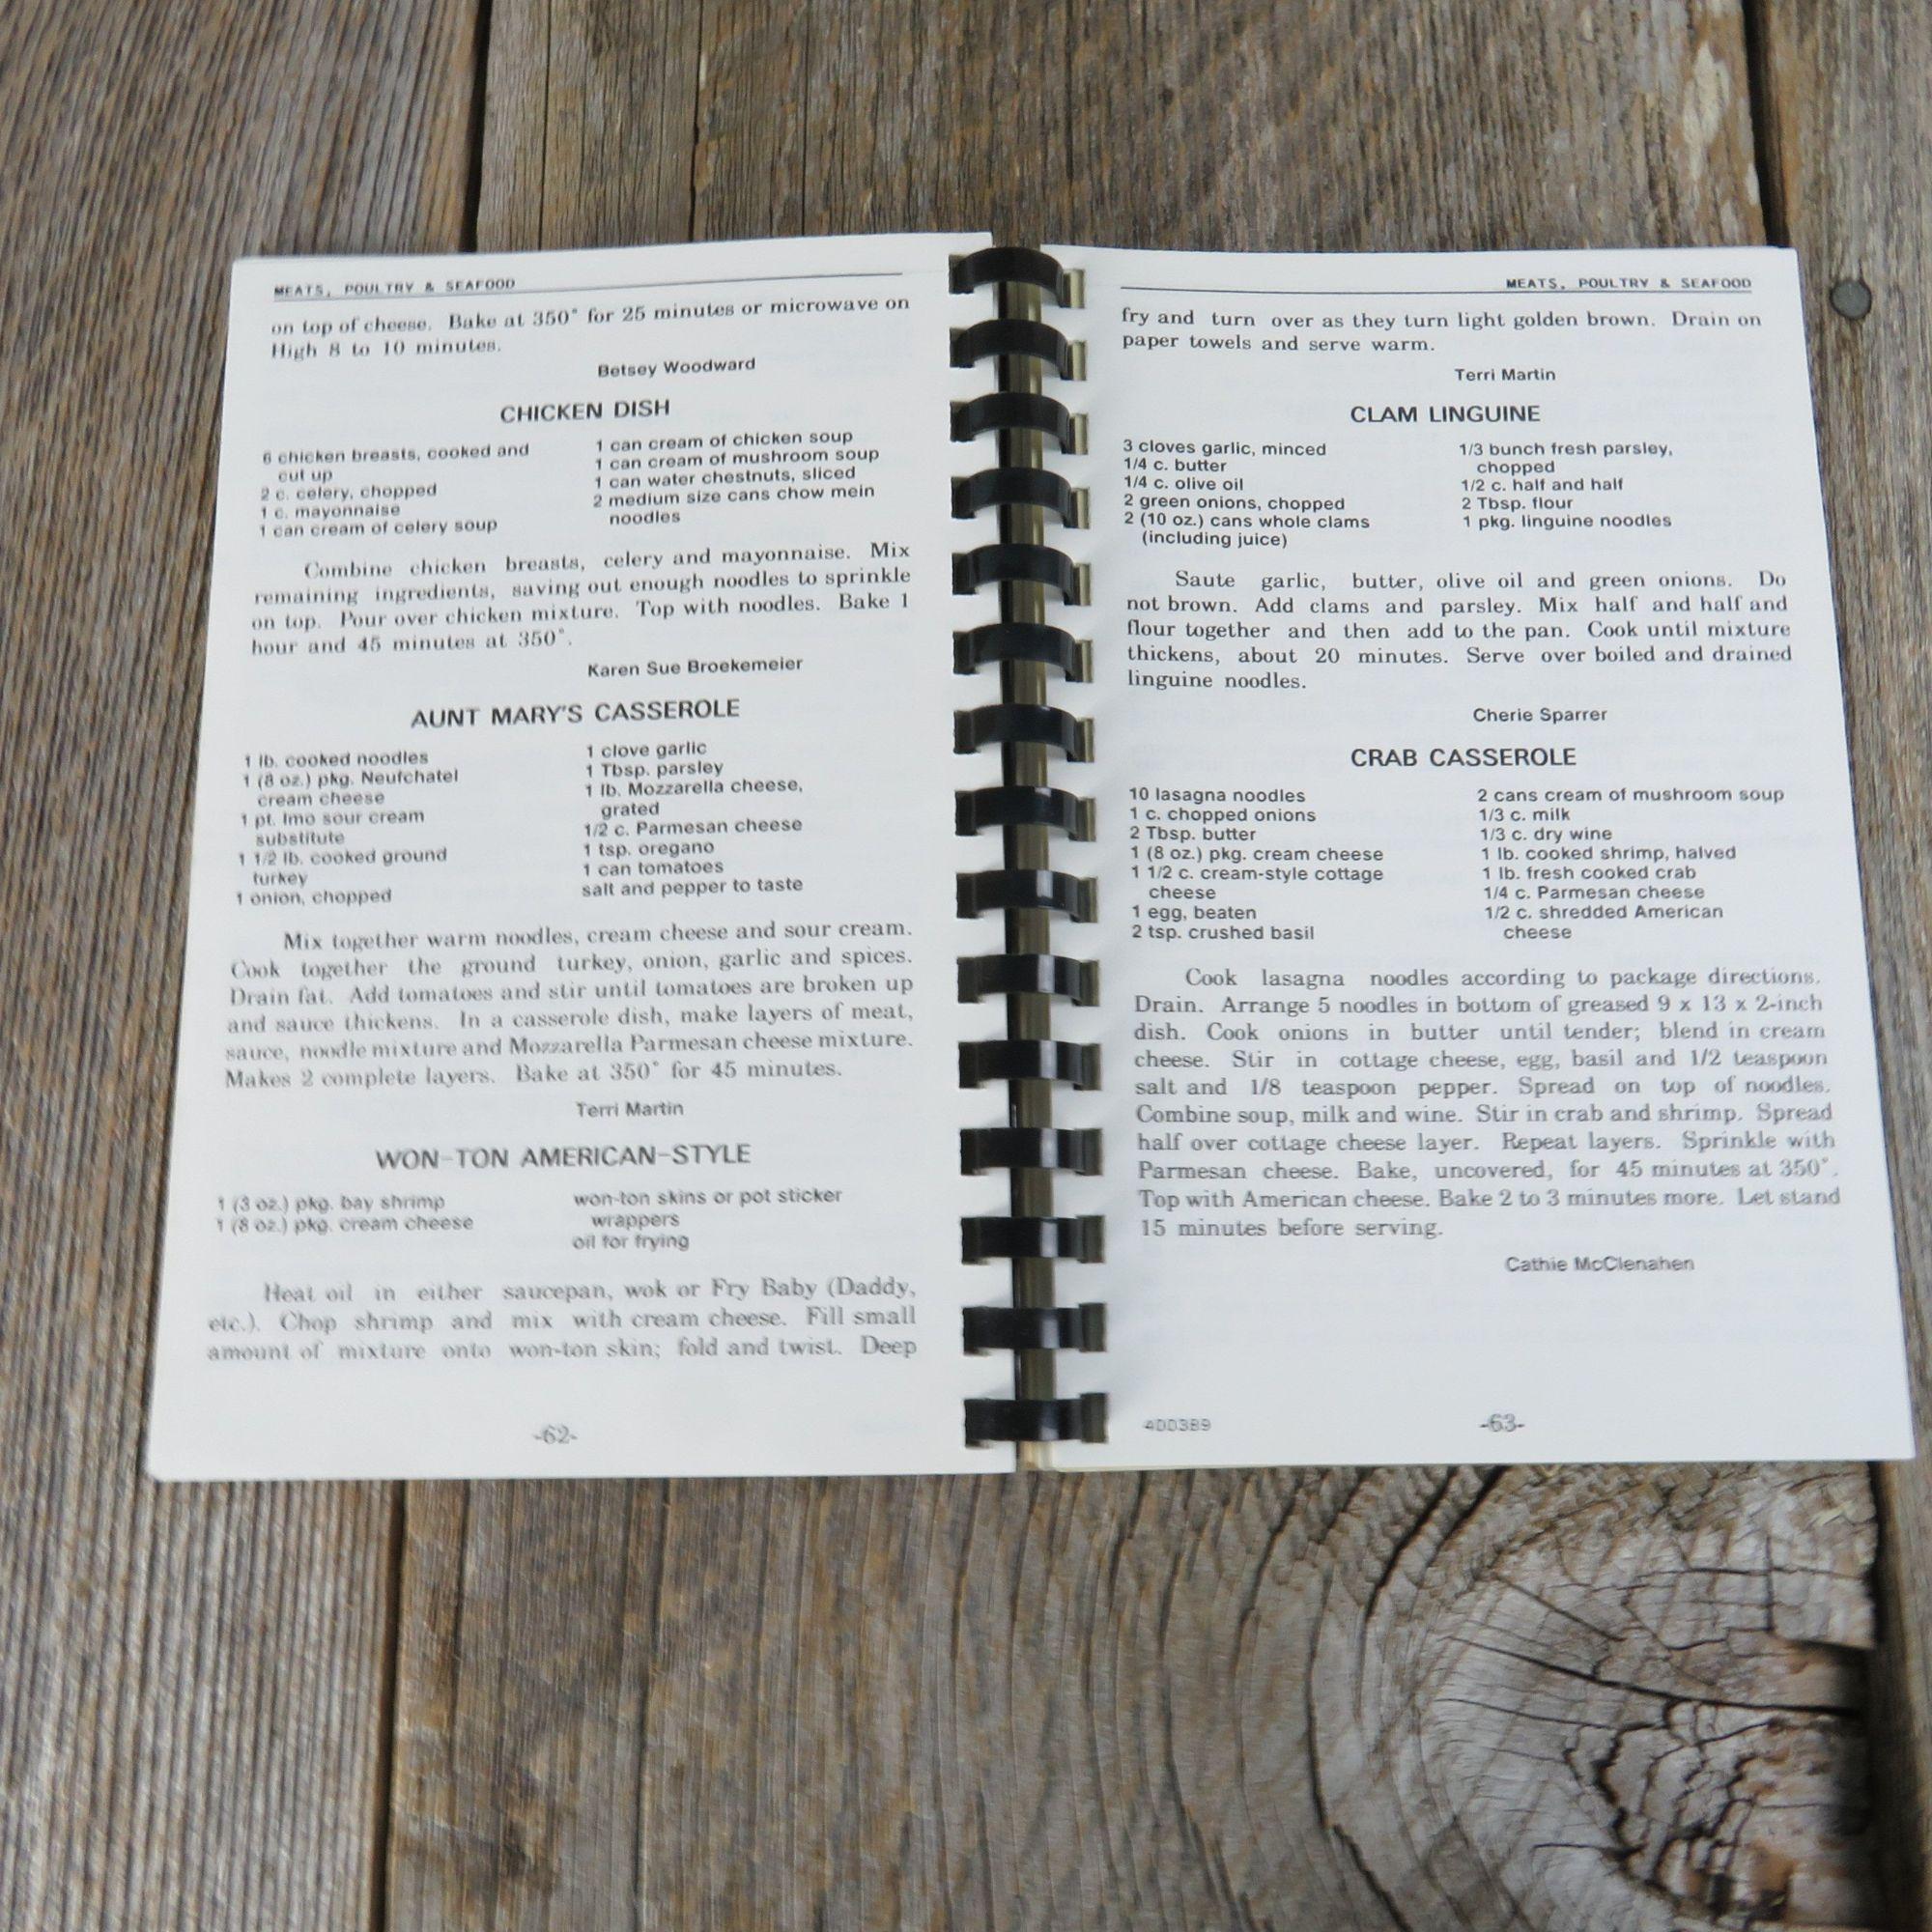 MEATS, POULTRY & SEAFOOD
on top of cheese. Bake at 350° for 25 minutes or microwave on
High 8 to 10 minutes.
Betsey Woodward
CHICKEN DISH
6 chicken breasts, cooked and
cut up
2 c. celery, chopped
1 c. mayonnaise
1 can cream of celery soup
1 can cream of chicken soup
1 can cream of mushroom soup
1 can water chestnuts, sliced
2 medium size cans chow mein
noodles
Combine chicken breasts, celery and mayonnaise. Mix
remaining ingredients, saving out enough noodles to sprinkle
on top. Pour over chicken mixture. Top with noodles. Bake 1
hour and 45 minutes at 350°.
Karen Sue Broekemeier
AUNT MARY'S CASSEROLE
1 lb. cooked noodles
1 (8 oz.) pkg. Neufchatel
cream cheese
1 pt. Imo sour cream
substitute
1 1/2 lb. cooked ground
turkey
1 onion, chopped
1 clove garlic
1 Tbsp. parsley
1 lb. Mozzarella cheese,
grated
1/2 c. Parmesan cheese
1 tsp. oregano
1 can tomatoes
salt and pepper to taste
Mix together warm noodles, cream cheese and sour cream.
Cook together the ground turkey, onion, garlic and spices.
Drain fat. Add tomatoes and stir until tomatoes are broken up
and sauce thickens. In a casserole dish, make layers of meat,
sauce, noodle mixture and Mozzarella Parmesan cheese mixture.
Makes 2 complete layers. Bake at 350° for 45 minutes.
Terri Martin
WON-TON AMERICAN-STYLE
1 (3 oz.) pkg. bay shrimp
1 (8 oz.) pkg. cream cheese
won-ton skins or pot sticker
wrappers
oil for frying
Heat oil in either saucepan, wok or Fry Baby (Daddy,
etc.). Chop shrimp and mix with cream cheese. Fill small
amount of mixture onto won-ton skin; fold and twist. Deep
-62-
MEATS, POULTRY & SEAFOOD
fry and turn over as they turn light golden brown. Drain on
paper towels and serve warm.
Terri Martin
CLAM LINGUINE
3 cloves garlic, minced
1/4 c. butter
1/4 c. olive oil
2 green onions, chopped
2 (10 oz.) cans whole clams
(including juice)
1/3 bunch fresh parsley,
chopped
1/2 c. half and half
2 Tbsp. flour
1 pkg. linguine noodles
Saute garlic, butter, olive oil and green onions. Do
not brown. Add clams and parsley. Mix half and half and
flour together and then add to the pan. Cook until mixture
thickens, about 20 minutes. Serve over boiled and drained
linguine noodles.
Cherie Sparrer
CRAB CASSEROLE
10 lasagna noodles
1 c. chopped onions
2 Tbsp. butter
1 (8 oz.) pkg. cream cheese
1 1/2 c. cream-style cottage
cheese
1 egg, beaten
2 tsp. crushed basil
2 cans cream of mushroom soup
1/3 c. milk
1/3 c. dry wine
1 lb. cooked shrimp, halved
1 lb. fresh cooked crab
1/4 c. Parmesan cheese
1/2 c. shredded American
cheese
Cook lasagna noodles according to package directions.
Drain. Arrange 5 noodles in bottom of greased 9 x 13 x 2-inch
dish. Cook onions in butter until tender; blend in cream
cheese. Stir in cottage cheese, egg, basil and 1/2 teaspoon
salt and 1/8 teaspoon pepper. Spread on top of noodles.
Combine soup, milk and wine. Stir in crab and shrimp. Spread
half over cottage cheese layer. Repeat layers. Sprinkle with
Parmesan cheese. Bake, uncovered, for 45 minutes at 350°.
Top with American cheese. Bake 2 to 3 minutes more. Let stand
15 minutes before serving.
Cathie McClenahen
400389
-63-